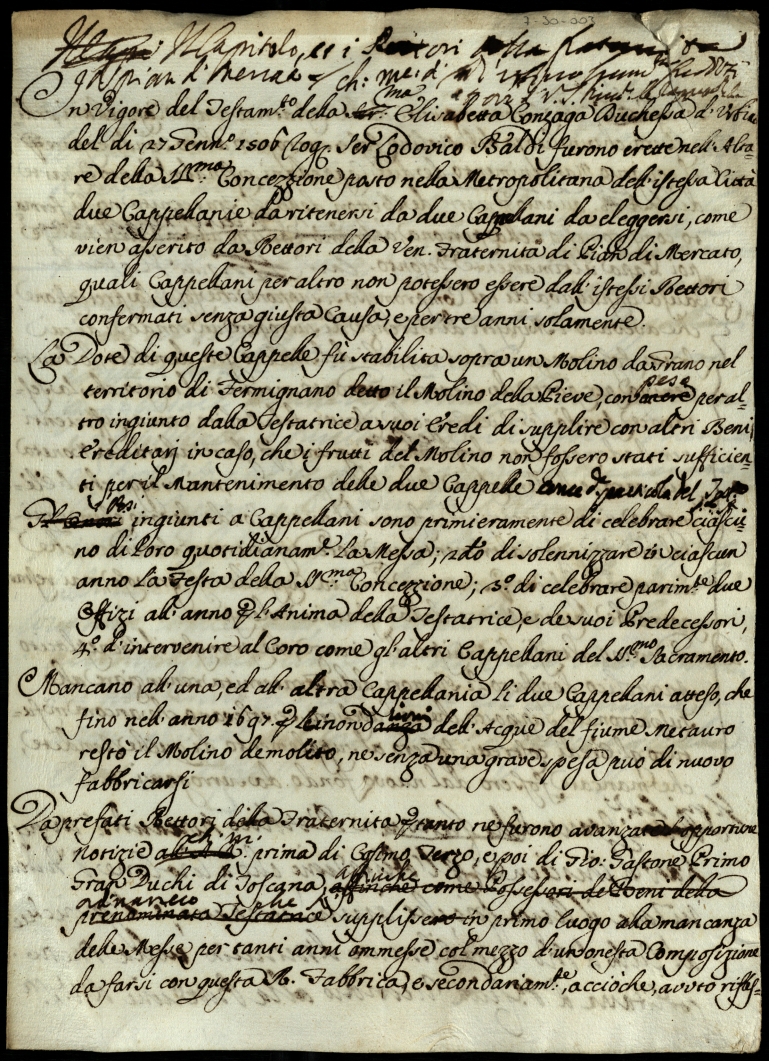 7-30-003
Il Capitolo, et i Rettori della Fraternita
In Vigore del Testam.to della Elisabetta Gonzaga Duchessa d'Urbino
del di 27 Genn.o 1506 rog. Ser Lodovico Baldi furono erette nell'Alta-
re della SS.ma Concezzione posto nella Metropolitana dell'istessa Città
due Cappellanie da ritenersi da due Cappellani da eleggersi, come
vien asserito da Rettori della Ven. Fraternità di Pian di Mercato,
quali Cappellani per altro non potessero essere dall'istessi Rettori
confermati senza giusta Causa, e per tre anni solamente.
La Dote di queste Cappelle fù stabilita sopra un Molino da Grano nel
territorio di Fermignano detto il Molino della Pieve, con peso per al-
tro ingiunto dalla Testatrice a suoi Eredi di supplire con altri Beni
Ereditarj in caso, che i frutti del Molino non fossero stati sufficien-
ti per il Mantenimento delle due Cappelle
Pesi ingiunti a Cappellani sono primieramente di celebrare ciascu-
no di loro quotidianam.e La Messa; 2do di solennizzare in ciascun
anno La Festa della SS.ma Concezzione; 3.o di celebrare parim.te due
Offizi all'anno p l'Anima della Testatrice, e de suoi Predecessori,
4.o d'intervenire al Coro come gl'altri Cappellani del SS.mo Sacramento.
Mancano all'una, ed all'altra Cappellania li due Cappellani atteso, che
fino nell'anno 1697. p le inondazioni dell'Acque del fiume Metauro
restò il Molino demolito, ne senza una grave spesa può di nuovo
fabbricarsi
Da prefati Rettori della Fraternita p tanto ne furono avanzate l'opportune
notizie prima di Cosimo Terzo, e poi di Gio: Gastone Primo
Gran Duchi di Toscana, affinche come Possessori de Beni della
prenominata Testatrice supplissero in primo luogo alla mancanza
delle Messe per tanti anni ommesse col mezzo d'un onesta Composizione
da farsi con questa R. Fabbrica, e secondariam.te, acciòche, avuto rifles-